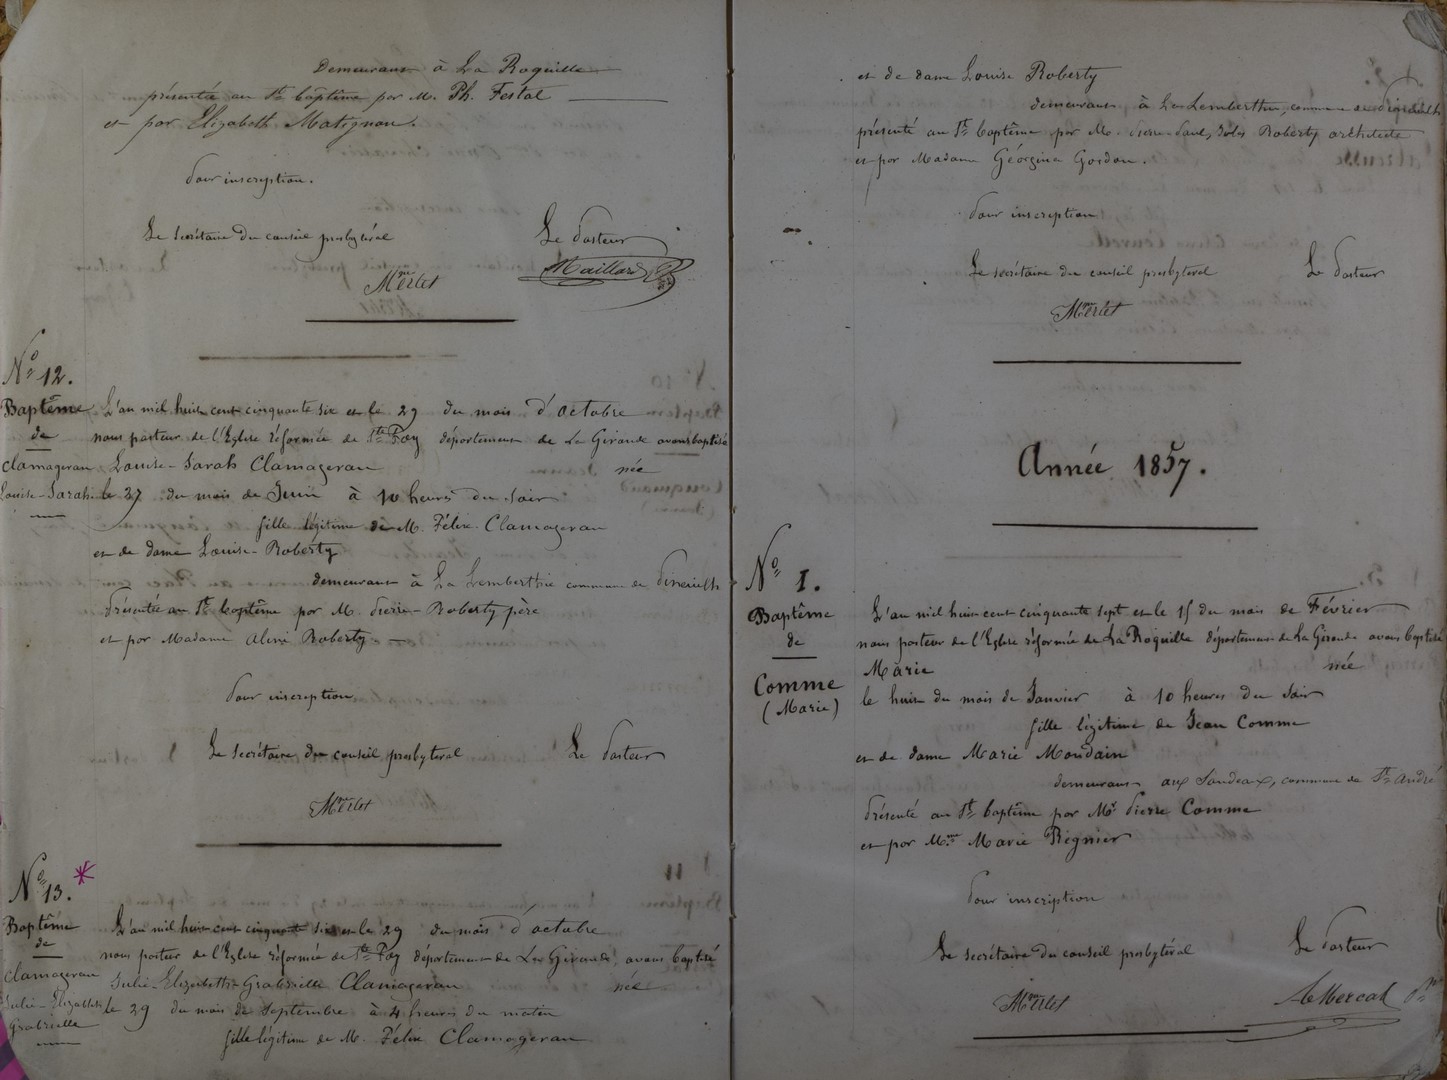 Demeurant à La Roquille
présentée au St baptême par M. Ph. Festal
et par Elizabeth Matignon.
Pour inscription.
Le secrétaire du conseil presbytéral
Le Pasteur
Merlet
Maillard
No 12.
Baptême
de
Clamageran
Louise-Sarah
L'an mil huit cent cinquante six et le 29 du mois d'octobre
nous pasteur de l'Eglise réformée de Ste Foy département de La Gironde avons baptisé
Louise-Sarah Clamageran née
le 27 du mois de Juin à 10 heures du soir
fille légitime de M. Félix Clamageran
et de dame Louise-Roberty
demeurant à La Lemberthie commune de Pineuilh
Présentée au St baptême par M. Pierre-Roberty père
et par Madame Aline Roberty
Pour inscription
Le secrétaire du conseil presbytéral
Le Pasteur
Merlet
No 13.
Baptême
de
Clamageran
Julie-Elizabeth
Grabrielle
L'an mil huit cent cinquante six et le 29 du mois d'octobre
nous pasteur de l'Eglise réformée de Ste Foy département de La Gironde avons baptisé
Julie-Elizabeth-Grabrielle Clamageran née
le 29 du mois de Septembre à 4 heures du matin
fille légitime de M. Félix Clamageran
et de dame Louise Roberty
demeurant à La Lemberthie, commune de Pineuilh
présenté au St baptême par M. Pierre-Paul, Jules Roberty architecte
et par Madame Géorgina Gordon.
Pour inscription
Le secrétaire du conseil presbyteral
Le Pasteur
Merlet
Année 1857.
No 1.
Baptême
de
Comme
(Marie)
L'an mil huit cent cinquante sept et le 15 du mois de Février
nous pasteur de l'Eglise réformée de La Roquille département de La Gironde avons baptisé
Marie née
le huit du mois de Janvier à 10 heures du soir
fille légitime de Jean Comme
et de dame Marie Moudain
demeurant aux, commune de St André
Présenté au St baptême par Mr Pierre Comme
et par Mme Marie Régnier
Pour inscription
Le secrétaire du conseil presbytéral
Le Pasteur
Merlet
A Mercat